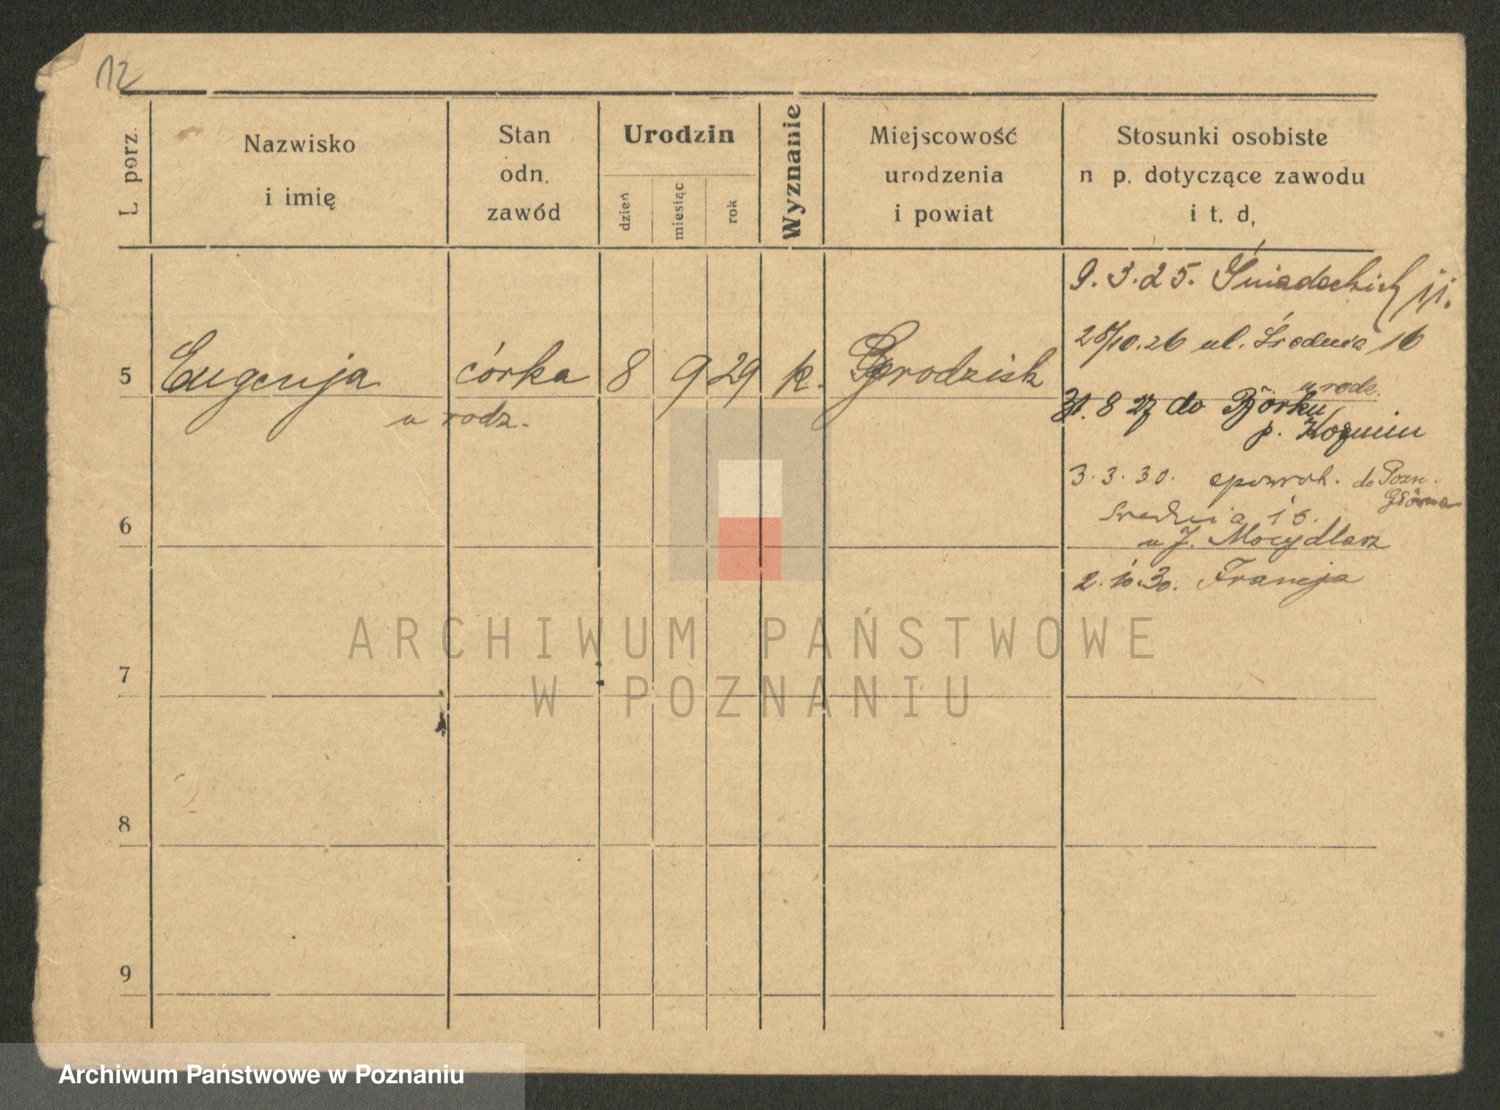 12
L. porz.
Nazwisko
i imię
Stan
odn.
zawód
Urodzin
dzień
miesiąc
rok
Wyznanie
Miejscowość
urodzenia
i powiat
Stosunki osobiste
n p. dotyczące zawodu
i t. d,
9.3.25. Śniadeckich
28/10.26 ul. Średnia 16
5 Eugenja córka 8 9 29 k. Grodzisk
u rodz.
u rodz.
31. 8 27 do Börku,
p. Koźmin
3.3.30. spowrot. do Pozn.
Główna
6
Średnia 16.
u J. Mocydlarz
2.10.30. Francja
ARCHIWUM PAŃSTWOWE
W POZNANIU
7
8
9
Archiwum Państwowe w Poznaniu